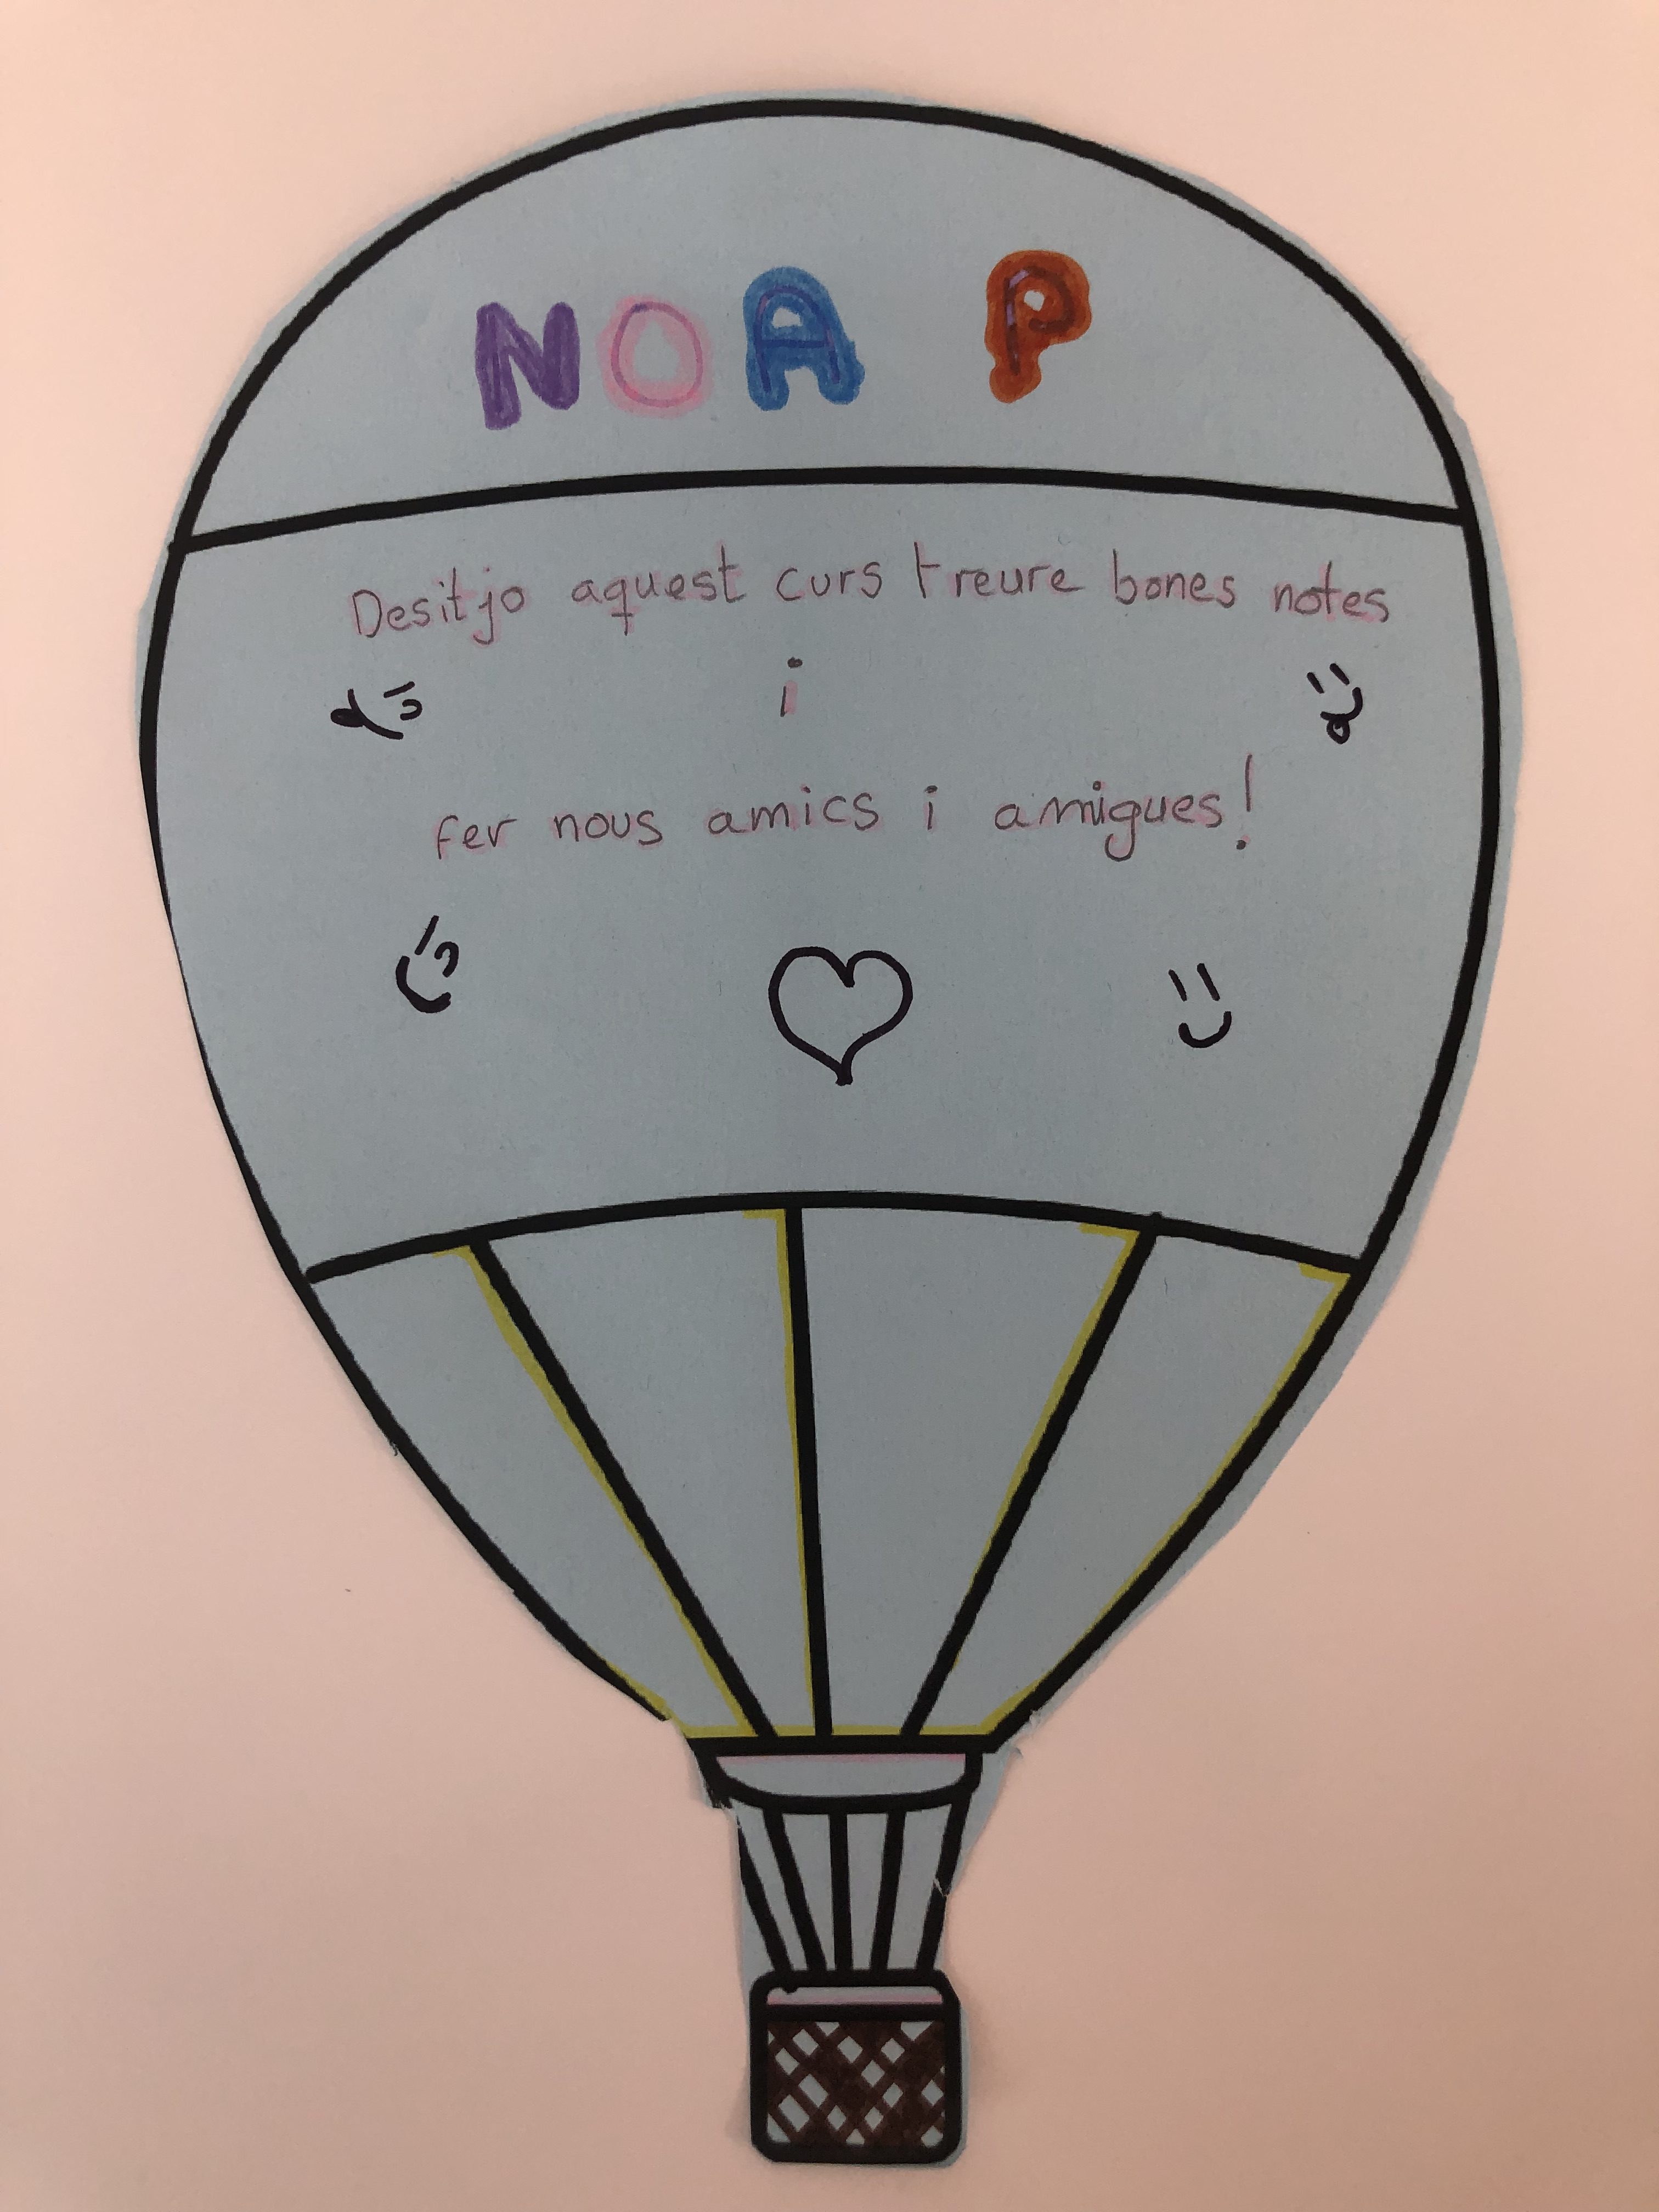 NOA P
Desitjo aquest curs treure bones notes
i
fer nous amics i amigues!